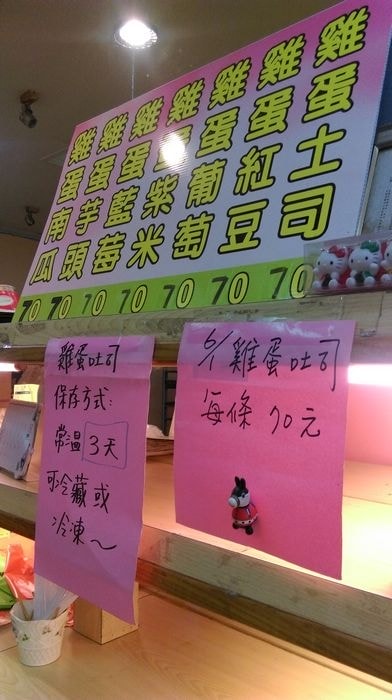 雞蛋土司
雞蛋紅豆
雞蛋葡萄
雞蛋紫米
雞蛋藍莓
雞蛋芋頭
雞蛋南瓜
70 70 70 70 70 70 70
雞蛋吐司
保存方式:
常溫 3天
可冷藏或
冷凍~
6/1 雞蛋吐司
每條 70元